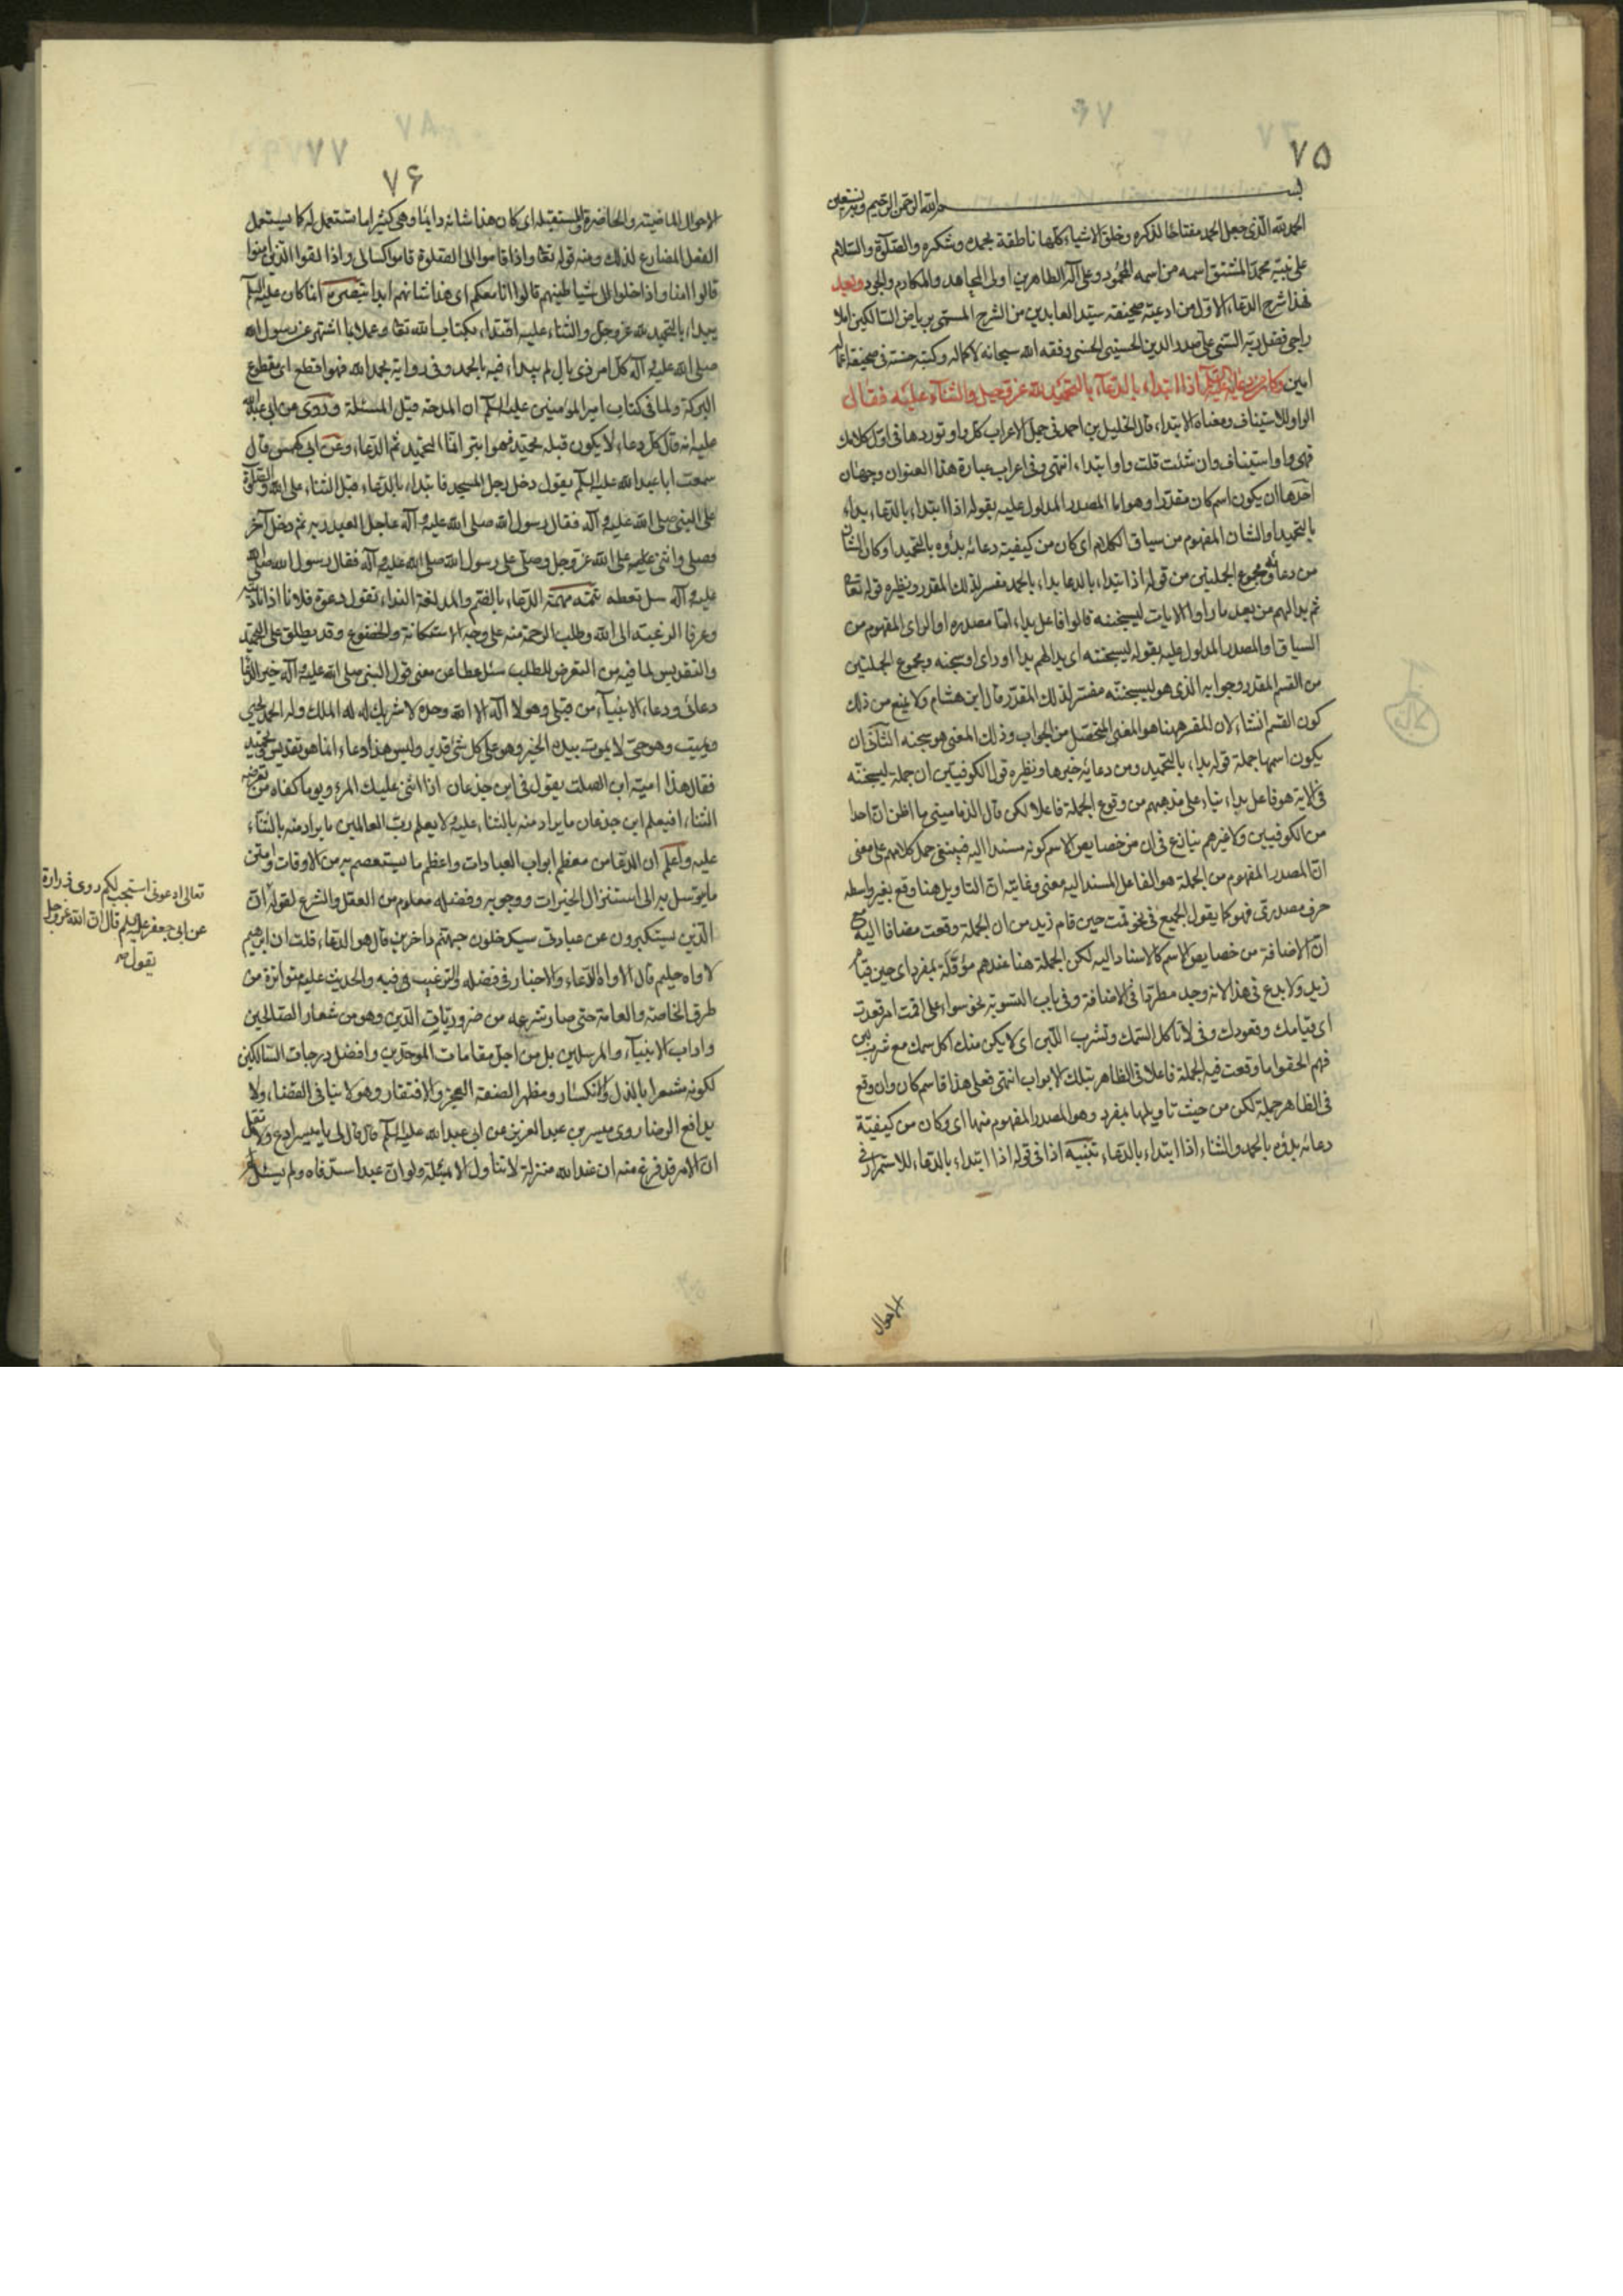 ۷۵
بسم الله الرحمن الرحيم وبه نستعين
الحمد لله الذى جعل الحمد مفتاحا لذكره وخلق الاشياء كلها ناطقة بحمده وشكره والصلوة والسلام
على نبيه محمد المشتق اسمه من اسمه المحمود وعلى آله الطاهرين اولى المجاهد والمكارم والجود وبعد
فهذا شرح الدعاء الاول من ادعية صحيفة سيد العابدين من الشرح المسمى برياض السالكين املا
راجى فضل ربه السنى على صدر الدين الحسينى الحسنى وفقه الله سبحانه لاكماله وكتبه حسنة فى صحيفة اعماله
امين وكان من دعائه عليه السلم اذا ابتداء بالدعاء بالتحميد لله عز وجل والثناء عليه فقال
الواو للاستيناف ومعناه الابتداء قال الخليل بن احمد فى جمل الاعراب كل واو توردها فى اول كلامك
فهى واو استيناف وان شئت قلت واو ابتداء انتهى وفى اعراب عبارة هذا العنوان وجهان
احدها ان يكون اسم كان مقدرا وهو اما المصدر المدلول عليه بقوله اذا ابتداء بالدعاء بداء
بالتحميد او الشان المفهوم من سياق الكلام اى كان من كيفية دعائه بدؤه بالتحميد او كان الشان
من دعائه ومجموع الجملتين من قوله اذا ابتداء بالدعا بداء بالحمد مفسر لذلك المقدر ونظيره قوله تعا
ثم بدا لهم من بعد ما راوا الايات ليسجننه قالوا فاعل بداء اما مصدره او الراى المفهوم من
السياق او المصدر المدلول عليه بقوله ليسجننه اى بدا لهم بدا او راى او سجنه ومجموع الجملتين
من القسم المقدر وجوابه الذى هو ليسجننه مفسر لذلك المقدر قال ابن هشام ولا يمنع من ذلك
كون القسم انشاء لان المفسر هيهنا هو المعنى المتحصل من الجواب وذلك المعنى هو سجنه الثانى ان
يكون اسمها جملة قوله بداء بالتحميد ومن دعائه خبرها ونظيره قول الكوفيين ان جملة ليسجننه
فى الاية هو فاعل بداء بناء على مذهبهم من وقوع الجملة فاعلا لكن قال الدمامينى ما اظن ان احدا
من الكوفيين ولا غيرهم ينازع فى ان من خصايص الاسم كونه مسندا اليه فينبغى حمل كلامهم على معنى
ان المصدر المفهوم من الجملة هو الفاعل المسند اليه معنى وغايته ان التاويل هنا وقع بغير واسطه
حرف مصدرى فهو كما يقول الجميع فى نحو قمت حين قام زيد من ان الجملة وقعت مضافا اليه مع
ان الاضافة من خصايص الاسم كالاسناد اليه لكن الجملة هنا عندهم مؤولة بمفرد اى حين قيام
زيد ولا بدع فى هذا لانه وجد مطردا فى الاضافة وفى باب التسوية نحو سواء على اقمت ام قعدت
اى قيامك وقعودك وفى لا تاكل السمك وتشرب اللبن اى لا يكن منك اكل سمك مع شرب لبن
فهم الحقوا ما وقعت فيه الجملة فاعلا فى الظاهر بتلك الابواب انتهى فعلى هذا قاسم كان وان وقع
فى الظاهر جملة لكن من حيث تاويلها بمفرد وهو المصدر المفهوم منها اى وكان من كيفية
دعائه بدؤه بالحمد والثناء اذا ابتداء بالدعاء تنبيه اذا فى قوله اذا ابتداء بالدعاء للاستمرار فى
الاحوال
۷۶
الاحوال الماضية والحاضرة والمستقبلة اى كان هذا شانه دايما وهى كثيرا ما تستعمل له كا يستعمل
الفعل المضارع لذلك ومنه قوله تعا واذا قاموا الى الصلوة قاموا كسالى واذا لقوا الذين امنوا
قالوا امنا واذا خلوا الى شياطينهم قالوا انا معكم اى هذا شانهم ابدا تبصرة انما كان عليه السلم
يبداء بالتحميد لله عز وجل والثناء عليه اقتداء بكتاب الله تعا وعملا بما اشتهر عن رسول الله
صلى الله عليه وآله كل امر ذى بال لم يبداء فيه بالحمد وفى رواية بحمد الله فهو اقطع اى مقطوع
البركة ولما فى كتاب امير المؤمنين عليه السلم ان المدحة قبل المسئلة وروى عن ابى عبد الله
عليه انه قال كل دعاء لا يكون قبله تحميد فهو ابتر انما التحميد ثم الدعاء وعن ابى كهمس قال
سمعت ابا عبد الله عليه السلم يقول دخل رجل المسجد فابتداء بالدعاء قبل الثناء على الله والصلوة
على النبى صلى الله عليه وآله فقال رسول الله صلى الله عليه وآله عاجل العبد ربه ثم دخل آخر
فصلى واثنى على الله عز وجل وصلى على رسول الله صلى الله عليه وآله فقال رسول الله صلى الله
عليه وآله سل تعطه تتمه مهمة الدعاء بالضم والمد لغة النداء تقول دعوت فلانا اذا ناديته
وعرفا الرغبة الى الله وطلب الرحمة منه على وجه الاستكانة والخضوع وقد يطلق على التمجيد
والتقديس لما فيه من التعرض للطلب سئل عطا عن معنى قول النبى صلى الله عليه وآله خير الدعا
دعائى ودعاء الانبياء من قبلى وهو لا اله الا الله وحده لا شريك له له الملك وله الحمد يحيى
ويميت وهو حى لا يموت بيده الخير وهو على كل شئ قدير وليس هذا دعاء انما هو تقديس وتمجيد
فقال هذا امية ابن الصلت يقول فى ابن جذعان اذا اثنى عليك المرء يوما كفاه من تعرضه
الثناء افيعلم ابن جذعان ما يراد منه بالثناء عليه ولا يعلم رب العالمين ما يراد منه بالثناء
عليه واعلم ان الدعا من معظم ابواب العبادات واعظم ما يستعصم به من الافات وامتن
ما يتوسل به الى استنزال الخيرات ووجوبه وفضله معلوم من العقل والشرع لقوله ان
الذين يستكبرون عن عبادتى سيدخلون جهنم داخرين قال هو الدعاء قلت ان ابرهيم
لاواه حليم قال الاواه الدعاء والاخبار فى فضله والترغيب فى فيه والحديث عليه متواترة من
طرق الخاصة والعامة حتى صار شرعه من ضروريات الدين وهو من شعار الصالحين
واداب الانبياء والمرسلين بل من اجل مقامات الموحدين وافضل درجات السالكين
لكونه مشعرا بالذل والانكسار ومظهر الصفة العجز والافتقار وهو لا ينافى القضاء ولا
يدافع الرضا روى ميسر بن عبد العزيز عن ابى عبد الله عليه السلم قال قال لى يا ميسر ادع ولا تقل
ان الامر قد فرغ منه ان عند الله منزلة لا تنال الا بمسئلة ولو ان عبدا سد فاه ولم يسئل
تعالى ادعونى استجب لكم روى زرارة
عن ابى جعفر عليه السلم قال ان الله عز وجل
يقول